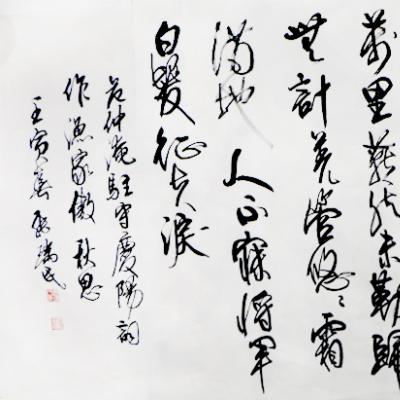 萬里燕然未勒歸
無計羌管悠悠霜
滿地人不寐將軍
白髮征夫淚
范仲淹駐守慶陽詞
作漁家傲秋思
壬寅春瑞民